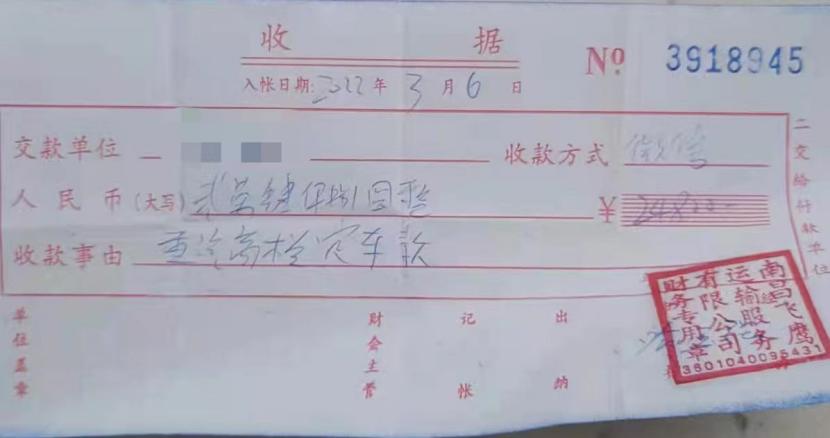 收 据
Nº 3918945
入帐日期: 2022 年 3 月 6 日
交款单位 收款方式 微信
人民币(大写) 贰万肆仟捌佰圆整 ¥ 24800-
收款事由 重汽高栏定车款
二交给付款单位
单位盖章 财会主管 记帐 出纳
南昌飞鹰
运输服务
有限公司
财务专用章
3601040095431